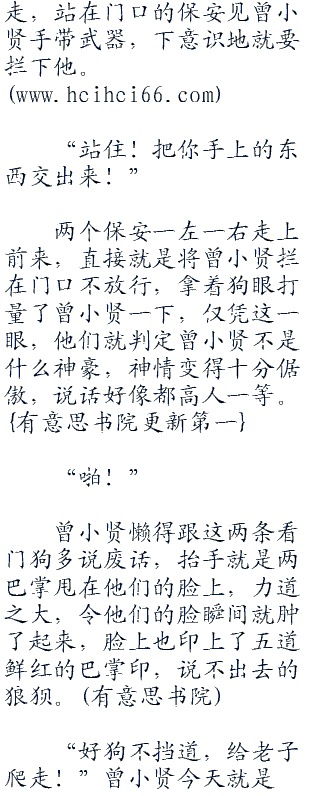 走，站在门口的保安见曾小
贤手带武器，下意识地就要
拦下他。
(www.hcihci66.com)
“站住！把你手上的东
西交出来！”
两个保安一左一右走上
前来，直接就是将曾小贤拦
在门口不放行，拿着狗眼打
量了曾小贤一下，仅凭这一
眼，他们就判定曾小贤不是
什么神豪，神情变得十分倨
傲，说话好像都高人一等。
{有意思书院更新第一}
“啪！”
曾小贤懒得跟这两条看
门狗多说废话，抬手就是两
巴掌甩在他们的脸上，力道
之大，令他们的脸瞬间就肿
了起来，脸上也印上了五道
鲜红的巴掌印，说不出去的
狼狈。(有意思书院)
“好狗不挡道，给老子
爬走！”曾小贤今天就是